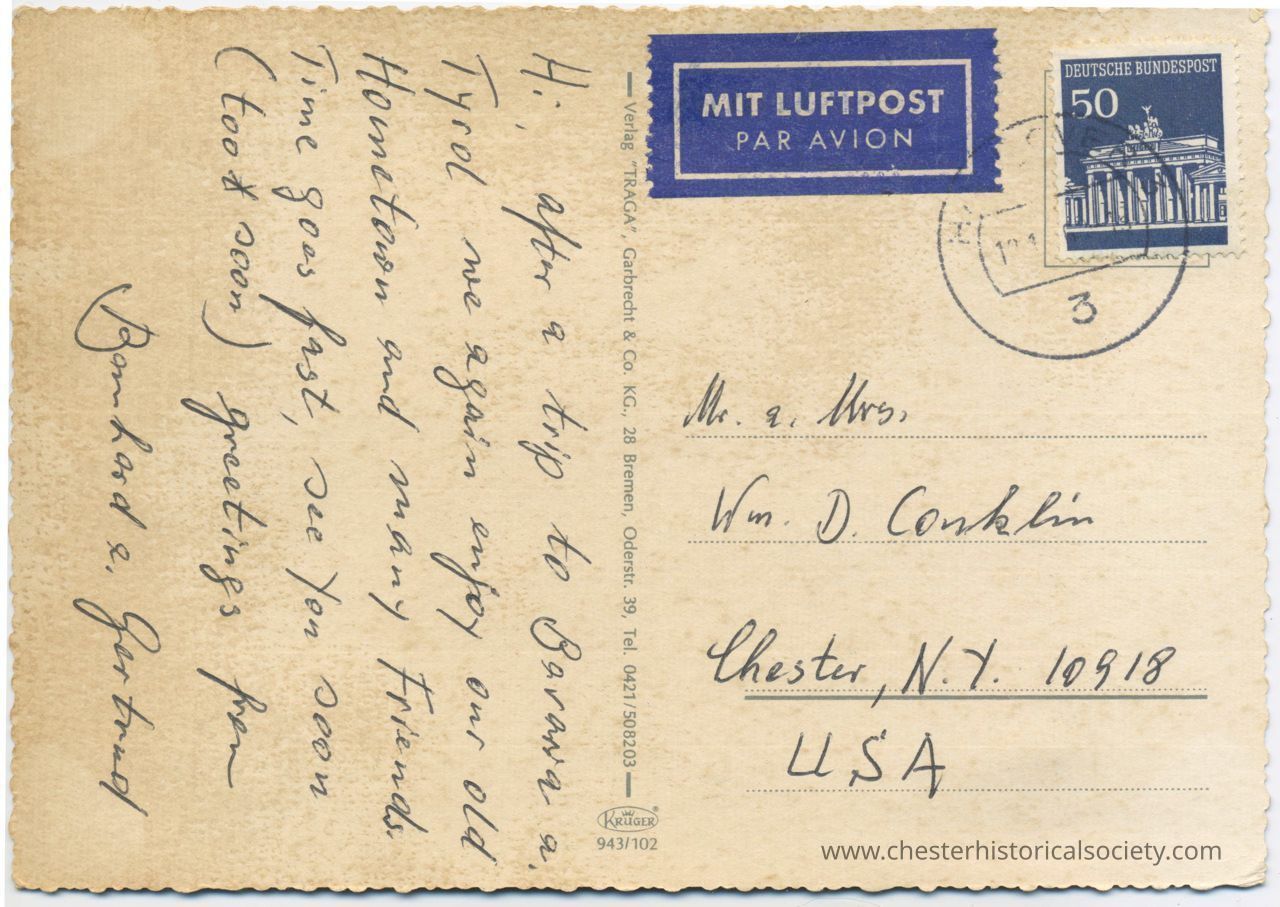 Hi, after a trip to Bavaria a.
Tyrol we again enjoy our old
Hometown and many friends.
Time goes fast, see You soon
(too soon) greetings from
Bernhard a. Gertrud
Verlag "TRAGA", Garbrecht & Co. KG., 28 Bremen, Oderstr. 39, Tel. 0421/508203
KRÜGER®
943/102
MIT LUFTPOST
PAR AVION
DEUTSCHE BUNDESPOST
50
3
Mr. a. Mrs.
Wm. D. Conklin
Chester, N.Y. 10918
USA
www.chesterhistoricalsociety.com